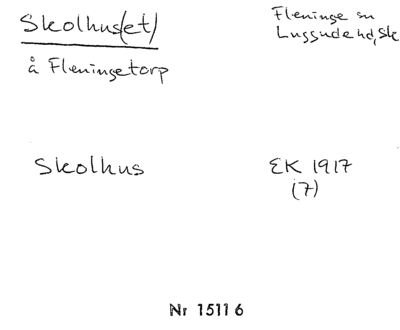 Skolhus(et)
Fleninge sn
Luggude hd, Sk
å Fleningetorp
Skolhus
EK 1917
(7)
Nr 15116